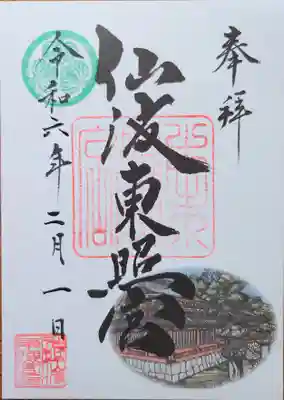 奉拝
仙波東照宮
令和六年二月一日